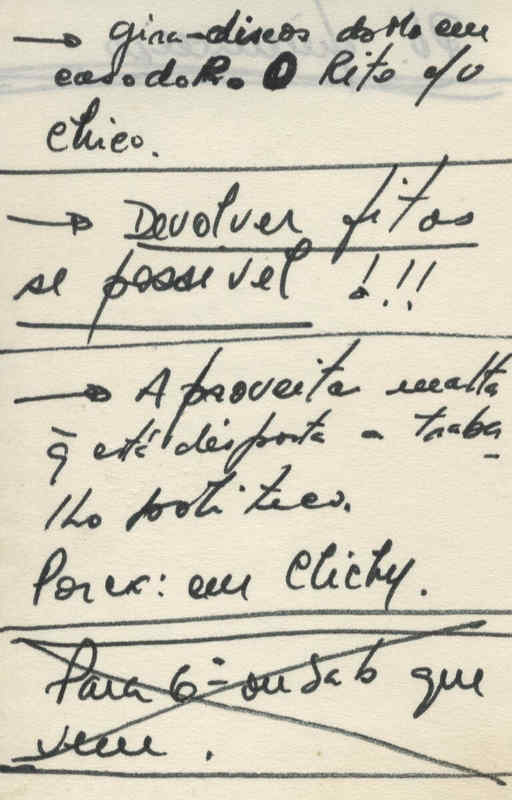 → gira-discos do Mo em
casa do R. O Rito e/ou
Chico.
→ Devolver fitas
se possivel !!!
→ Aproveitar malta
q̄ está disposta a traba
lho politico.
Por ex: em Clichy.
Para 6ª ou Sab que
vem.